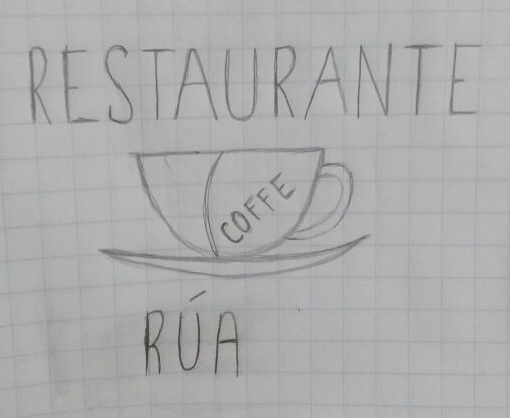 RESTAURANTE
COFFE
RÚA